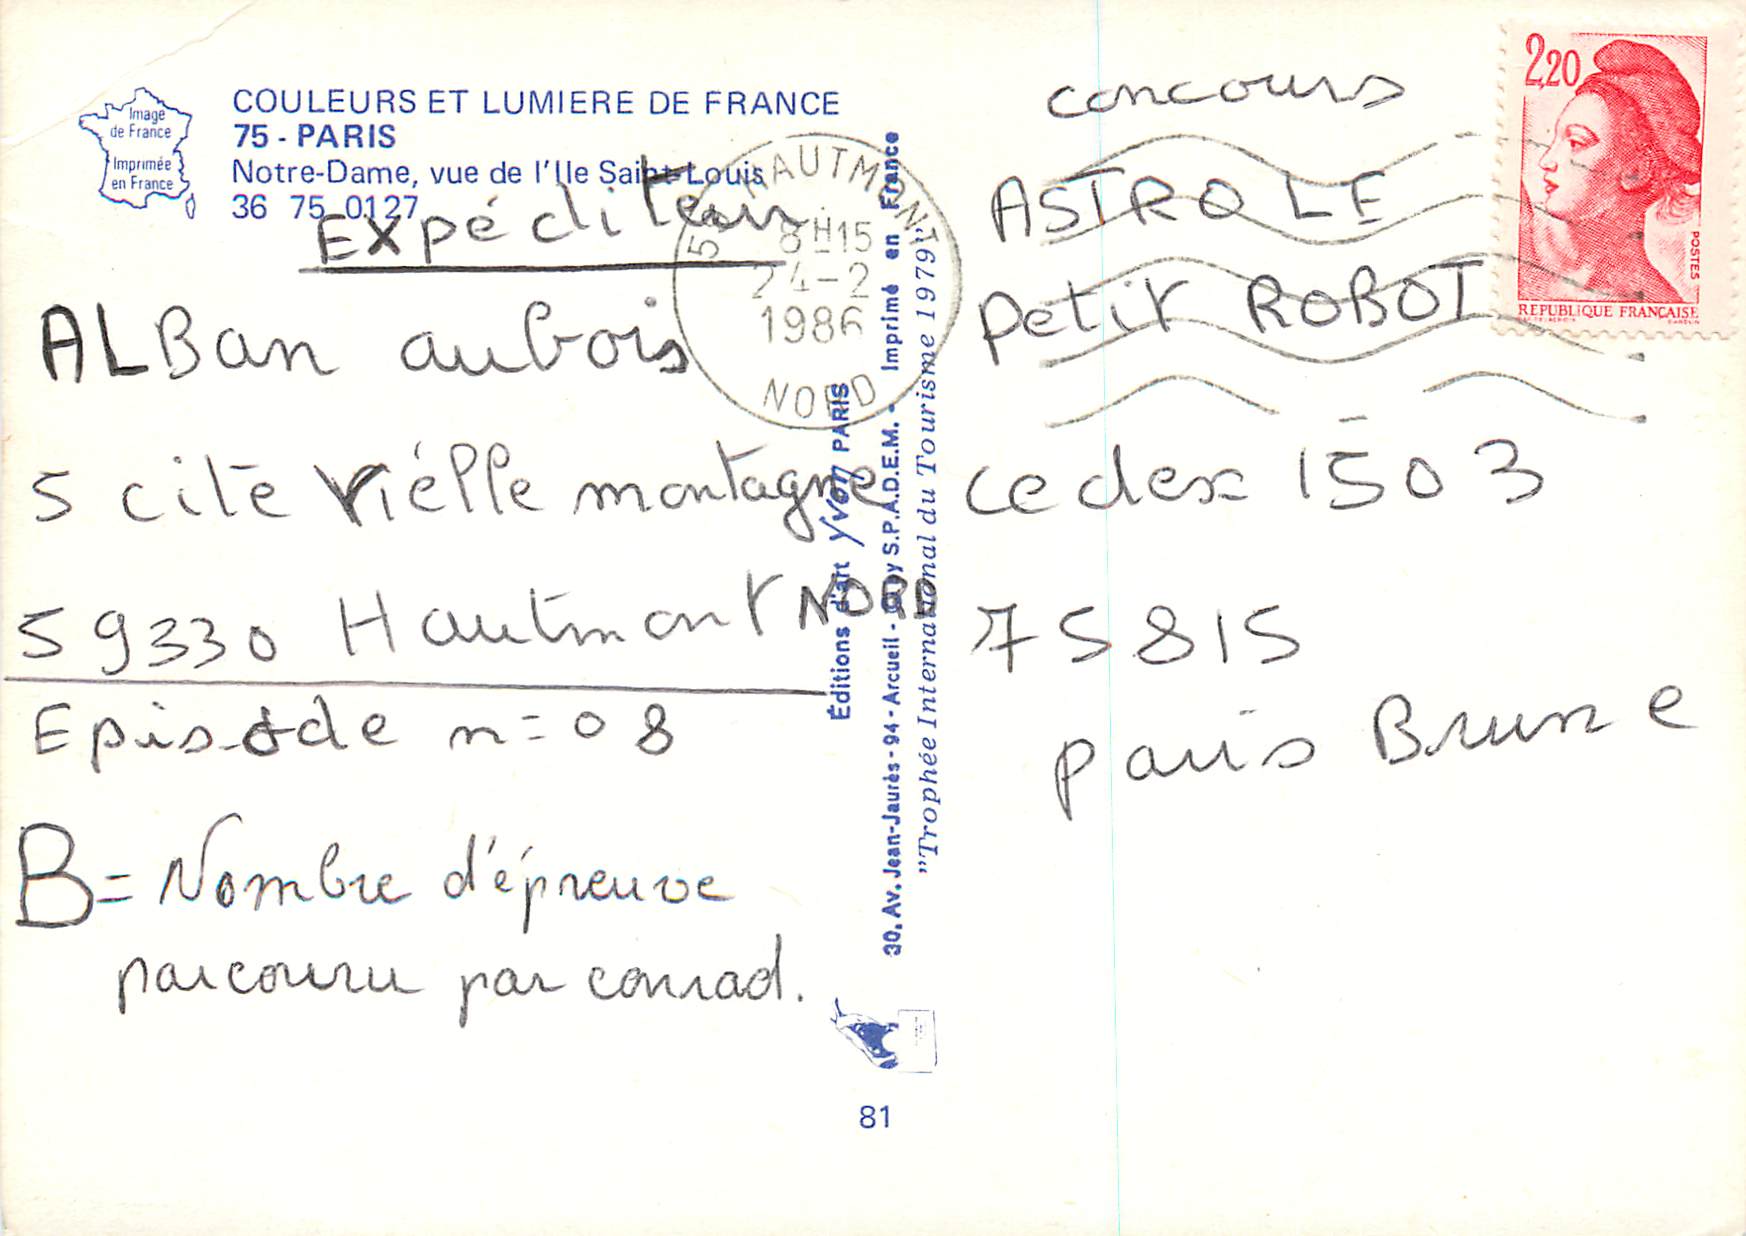 Image
de France
Imprimée
en France
COULEURS ET LUMIERE DE FRANCE
75 - PARIS
Notre-Dame, vue de l'Ile Saint-Louis
36 75 0127
Expéditeur
ALBan aubois
5 cite viélle montagne
59330 Hautmont NORD
Episode n=08
B= Nombre d'épreuve
parcouru par conrad.
59 HAUTMONT
8H15
24-2
1986
NORD
Éditions d'art Yvon PARIS
30, Av. Jean-Jaurès - 94 - Arcueil - by S.P.A.D.E.M. - Imprimé en France
"Trophée International du Tourisme 1979"
81
concours
ASTRO LE
Petit ROBOT
cedex 1503
75815
paris Brune
2,20
POSTES
REPUBLIQUE FRANÇAISE